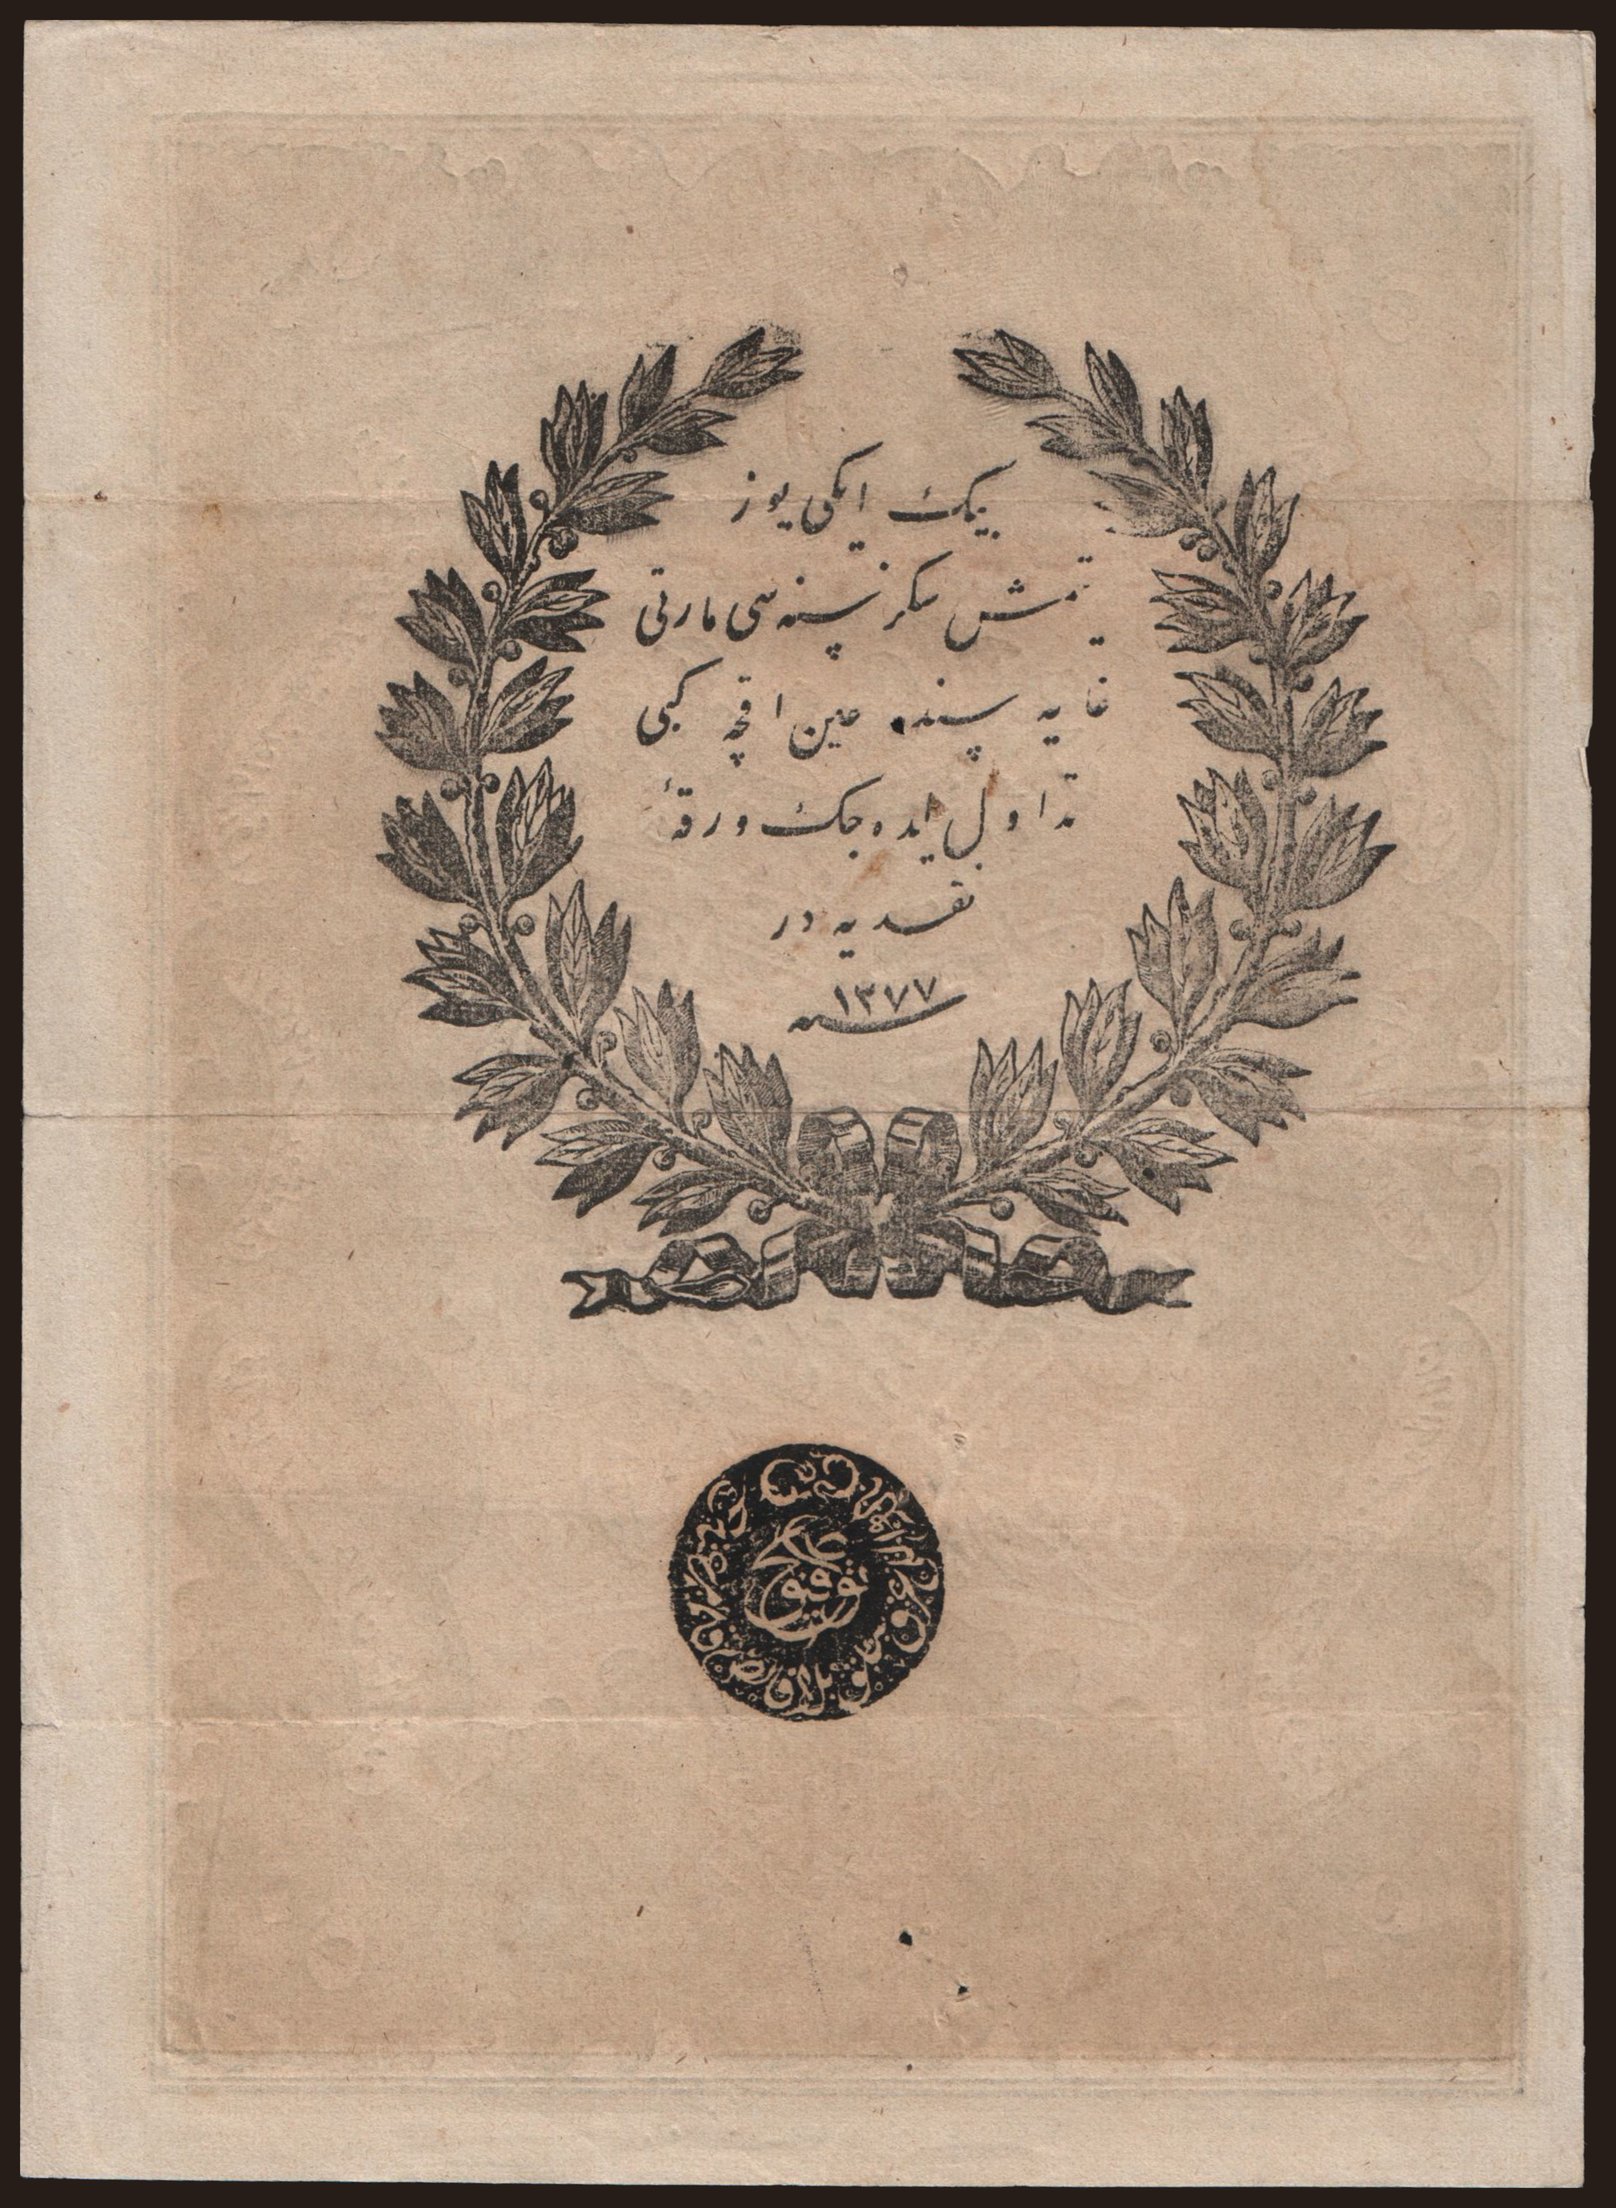 بیك ایکی یوز
یتمش سکز سنه سی مارتی
غایه سنده عین اقچه کبی
تداول ایده جك ورقهٔ
نقدیه در
سنه ١٢٧٧
توفیق